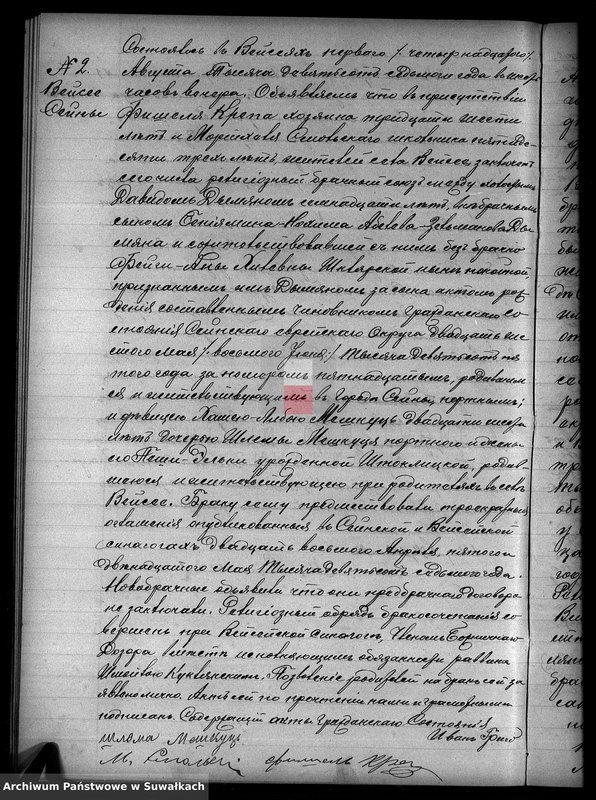 Состоялось въ Вейсеяхъ перваго /четырнадцатаго/
№ 2.
Вейсее
Сейны
Августа тысяча девятьсотъ седьмого года въ шесть
часовъ вечера. Объявляемъ что въ присутствіи
Фишеля Крепа хозяина тридцати шести
лѣтъ и школьника пятиде-
сяти трехъ лѣтъ жителей села Вейсее заключенъ
сего числа религіозный брачный союзъ между холостымъ
Давидомъ Дымяномъ семнадцати лѣтъ, внѣбрачнымъ
сыномъ Дымяна и сожительствовавшей съ нимъ безбрачно
Фейги-Аны нынѣ покойной
признаннымъ имъ Дымяномъ за сына актомъ рож-
денія составленнымъ чиновникомъ гражданскаго со-
стоянія Сейнскаго еврейскаго Округа двадцать ше-
стого мая /восьмого Іюня/ тысяча девятьсотъ пя-
того года за номеромъ пятнадцатымъ, родившим-
ся и жительствующимъ въ городѣ Сейны, портнымъ;
и дѣвицею Хашею-Либою Мешкуцъ двадцати
лѣтъ дочерью Шлёмы Мешкуца портного и жены
его Пеши-Эльки урожденной родив-
шеюся и жительствующею при родителяхъ въ селѣ
Вейсее. Браку сему предшествовали троекратныя
оглашенія опубликованныя въ Сейнской и Вейсейской
синагогахъ двадцать восьмого Апрѣля, пятаго и
двѣнадцатаго Мая тысяча девятьсотъ седьмого года.
Новобрачные объявили что они предбрачнаго договора
не заключали. Религіозный обрядъ бракосочетанія со-
вершенъ при Вейсейской синагогѣ, Членомъ Божничнаго
Дозора вмѣстѣ исполняющимъ обязанности раввина
Позволеніе родителей на бракъ сей за-
явлено лично. Актъ сей по прочтеніи нами и грамотными
подписанъ. Содержащій акты Гражданскаго Состоянія
шлама Мешкуцъ Иванъ
фишель Креп
Archiwum Państwowe w Suwałkach